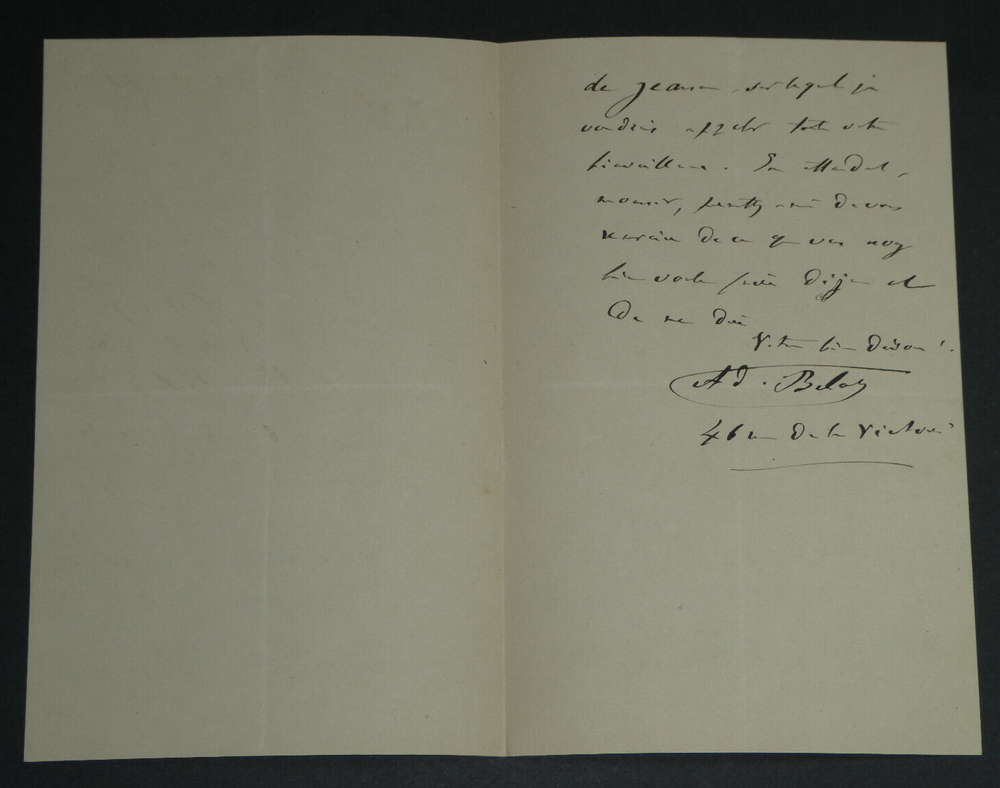 de jeanne sur lequel je
voudrais appeler toute votre
bienveillance. En attendant,
monsieur, permettez-moi de vous
remercier de ce que vous avez
bien voulu faire déjà et
de me dire
Votre bien dévoué.
Ad. Belot
46 rue de la Victoire